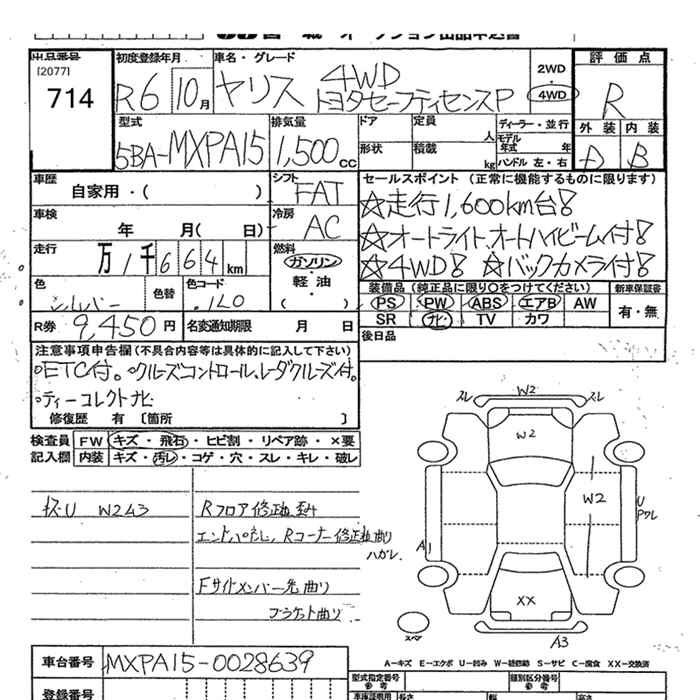 オークション出品申込書
出品番号 初度登録年月 車名・グレード 評価点
[2077] 2WD
714 R6 10月 ヤリス 4WD トヨタセーフティセンスP 4WD R
型式 排気量 ドア 定員 人 ディーラー・並行 外装 内装
5BA-MXPA15 1,500cc 形状 積載 kg モデル年式 年 ハンドル 左・右 D B
車歴 自家用・( ) シフト FAT セールスポイント (正常に機能するものに限ります)
車検 年 月( 日) 冷房 AC ☆走行1,600km台!
☆オートライト、オートハイビーム付!
走行 万 1千664km 燃料 ガソリン・軽油・( ) ☆4WD! ☆バックカメラ付!
色 シルバー 色替 色コード 1L0 装備品 (純正品に限り○をつけてください) 新車保証書
PS PW ABS エアB AW 有・無
R券 9,450円 名変通知期限 月 日 SR ナビ TV カワ
注意事項申告欄(不具合内容等は具体的に記入して下さい) 後日品
○ETC付。○クルーズコントロール、レーダクルーズ付。
○ディーコレクトナビ
修復歴 有 〔箇所 〕
検査員 FW キズ・飛石・ヒビ割・リペア跡・×要
記入欄 内装 キズ・汚レ・コゲ・穴・スレ・キレ・破レ
W2A3 Rフロア修正済み
エンドパネル、Rコーナー修正曲り
ハガレ
Fサイドメンバー先曲り
ブラケット曲り
スレ W2 スレ
W2
W2
U
ワレ
A1
XX
スペア
A3
A－キズ E－エクボ U－凹み W－補修跡 S－サビ C－腐食 XX－交換済
車台番号 MXPA15-0028639 型式指定番号 参考 類別区分番号 参考
登録番号 車庫証明用 参考 長さ 幅 高さ